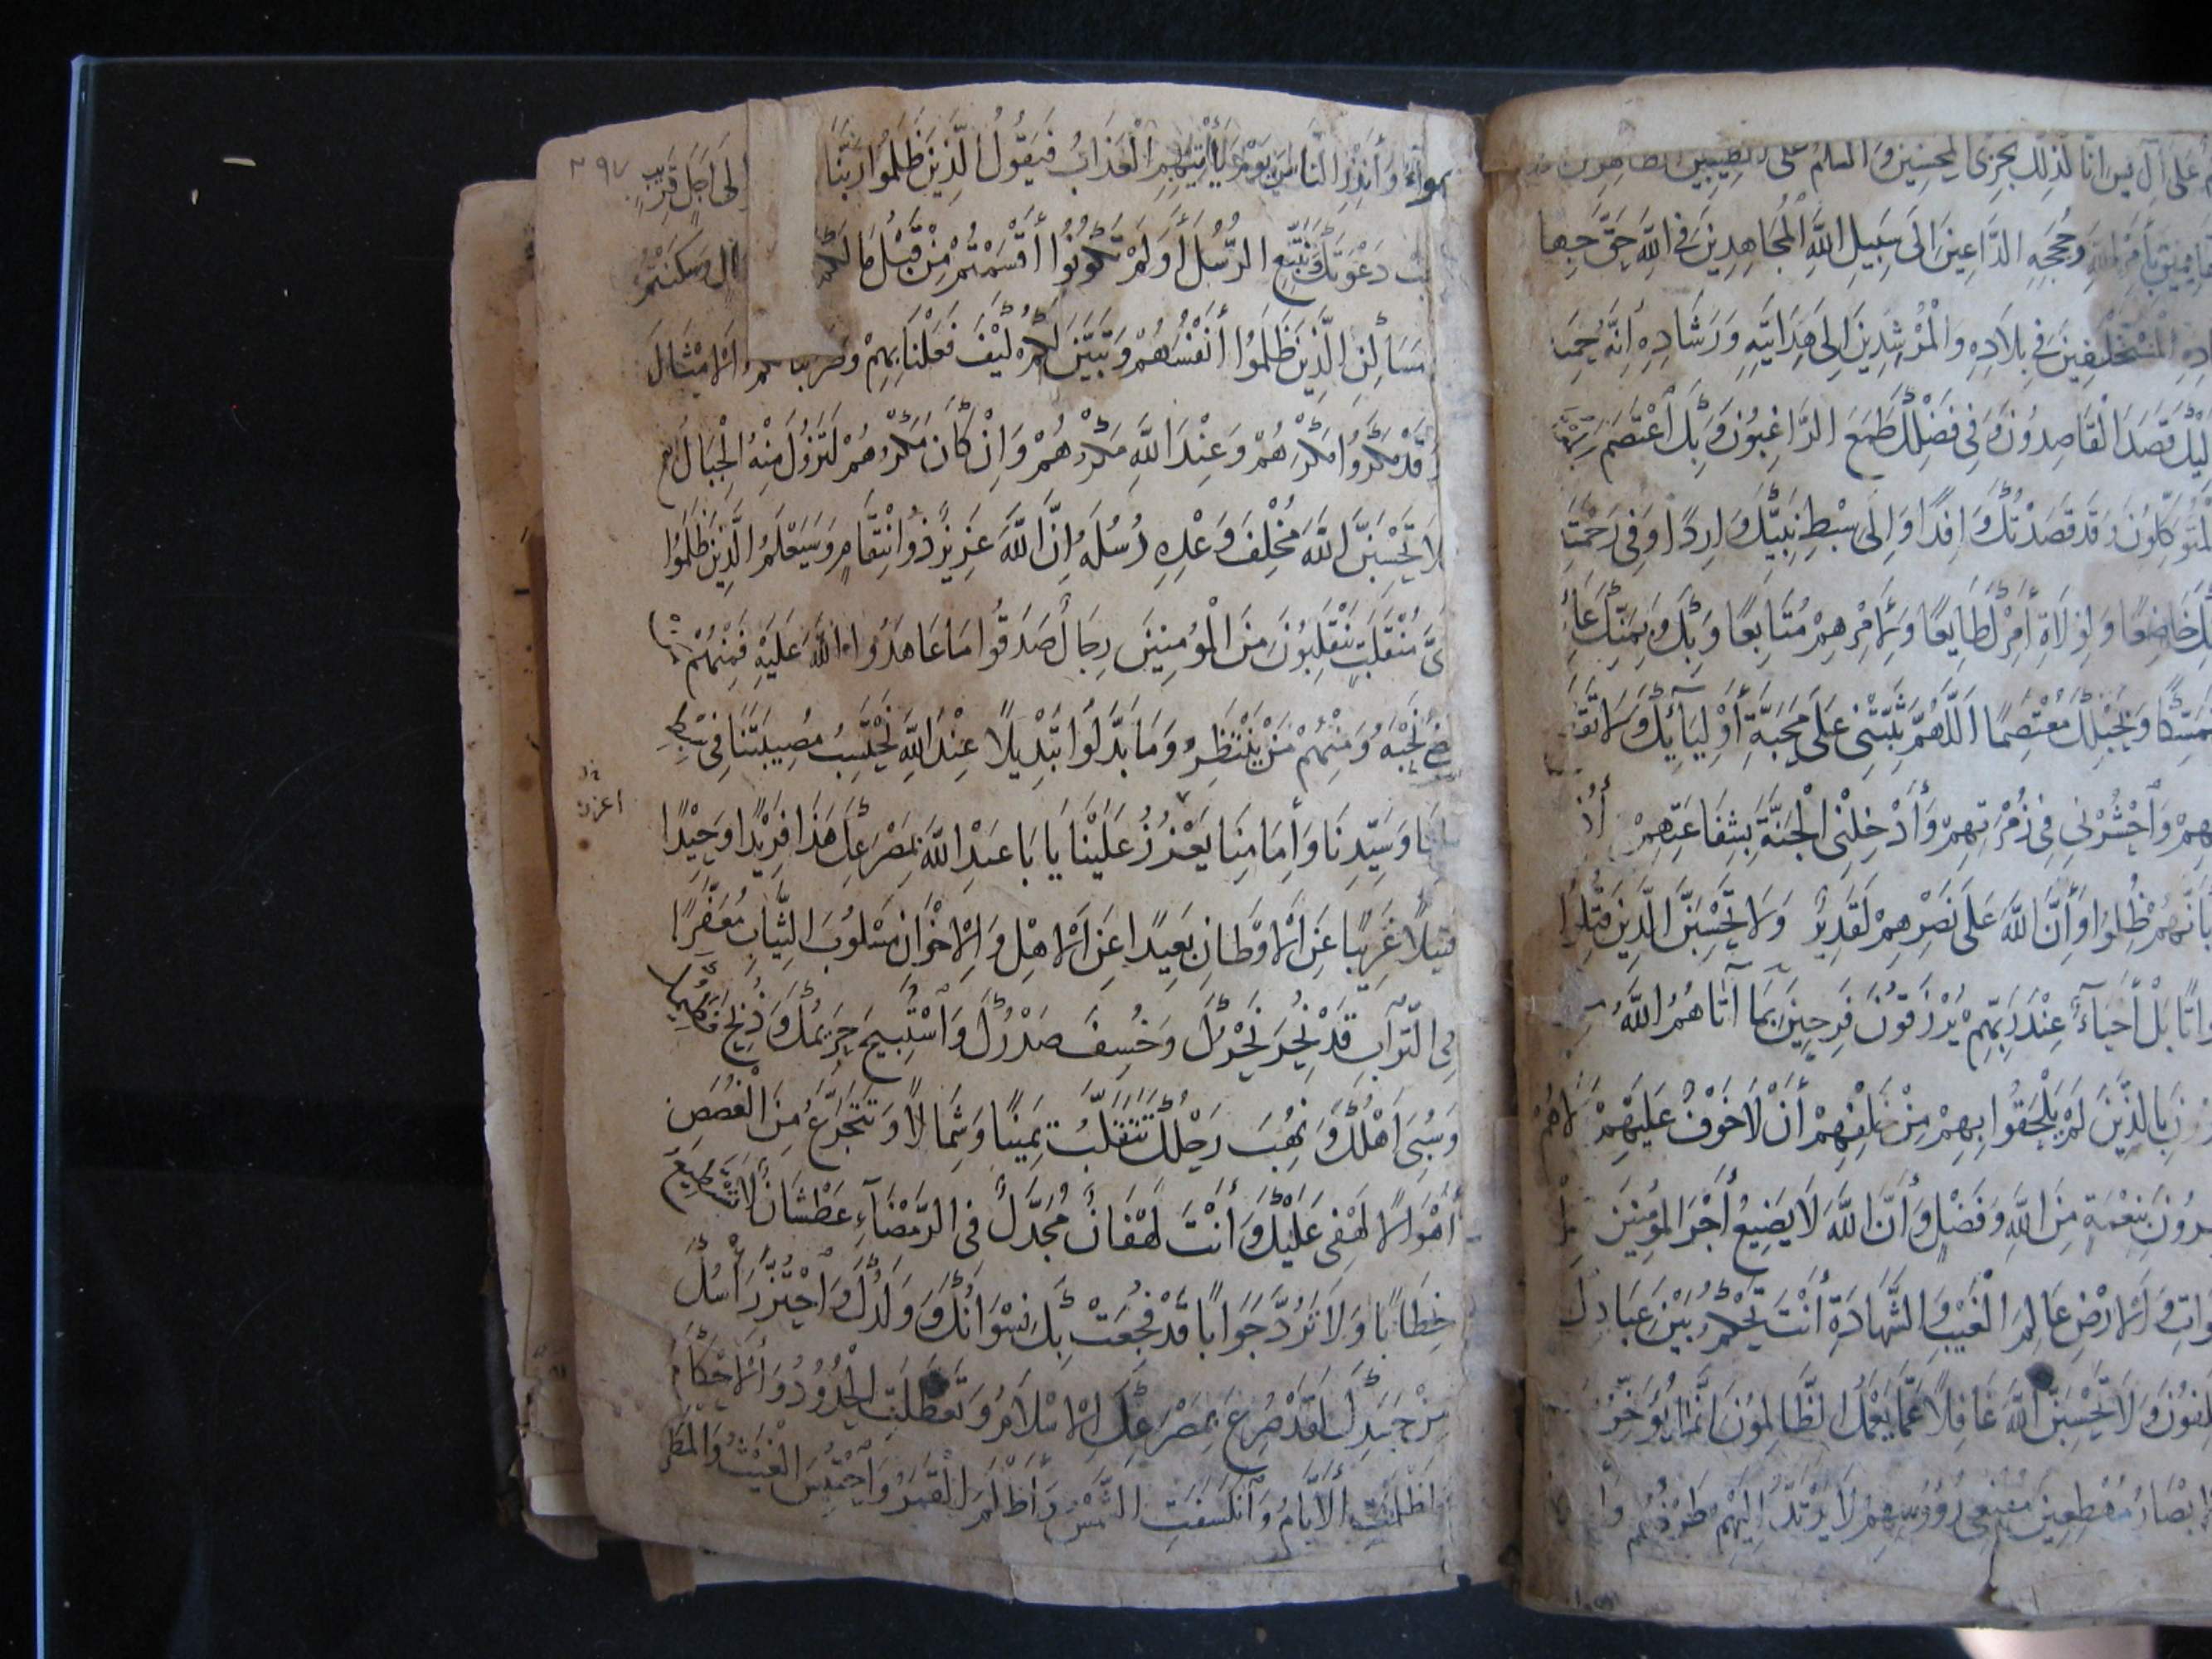 على آل يس انا كذلك نجزي المحسنين والسلام على الطيبين الطاهرين
وحججه الداعين الى سبيل الله المجاهدين في الله حق جها
المستخلفين في بلاده والمرشدين الى هدايته ورشاده انه حميد
اليك قصد القاصدون وفي فضلك طمع الراغبون وبك اعتصم
المتوكلون وقد قصدتك وافدا والى سبط نبيك واردا وفي رحمتك
خاضعا ولولاة أمرك طايعا ولأمرهم متابعا وبك وبمنك عائ
متمسكا وبحبلك معتصما اللهم ثبتني على محبة أوليايك ولا تق
واحشرني في زمرتهم وأدخلني الجنة بشفاعتهم أذ
بانهم ظلموا وأن الله على نصرهم لقدير ولا تحسبن الذين قتلوا
بل أحياء عند ربهم يرزقون فرحين بما آتاهم الله
بالذين لم يلحقوا بهم من خلفهم أن لا خوف عليهم ولا هم
بنعمة من الله وفضل وأن الله لا يضيع أجر المؤمنين
والارض عالم الغيب والشهادة أنت تحكم بين عبادك
ولا تحسبن الله غافلا عما يعمل الظالمون انما يؤخر
مهطعين مقنعي رؤوسهم لا يرتد اليهم طرفهم وأ
٣٩٧
هواء وأنذر الناس يوم يأتيهم العذاب فيقول الذين ظلموا ربنا الى اجل قريب
دعوتك ونتبع الرسل أولم تكونوا أقسمتم من قبل ما لكم وسكنتم
مساكن الذين ظلموا أنفسهم وتبين لكم كيف فعلنا بهم وضربنا لكم الامثال
وقد مكروا مكرهم وعند الله مكرهم وان كان مكرهم لتزول منه الجبال
لا تحسبن الله مخلف وعده رسله إن الله عزيز ذو انتقام وسيعلم الذين ظلموا
منقلب ينقلبون من المؤمنين رجال صدقوا ما عاهدوا الله عليه فمنهم
نحبه ومنهم من ينتظر وما بدلوا تبديلا عند الله نحتسب مصيبتنا في
وسيدنا وأمامنا يعزز علينا يا با عبد الله بمصرعك هذا فريدا وحيدا
اعزز
قتيلا غريبا عن الاوطان بعيدا عن الاهل والاخوان مسلوب الثياب معفرا
في التراب قد نحر نحرك وخسف صدرك واستبيح حريمك وذبح فطيمك
وسبي أهلك ونهب رحلك تتقلب يمينا وشمالا وتتجرع من الغصص
أهوالا لهفى عليك وأنت لهفان مجدل في الرمضاء عطشان لا تستطيع
خطابا ولا ترد جوابا قد فجعت بك نسوانك وولدك واحتز رأسك
من جسدك لقد صرع بمصرعك الاسلام وتعطلت الحدود والاحكام
واظلمت الأيام وانكسفت الشمس وأظلم القمر واحتبس الغيث والمطر